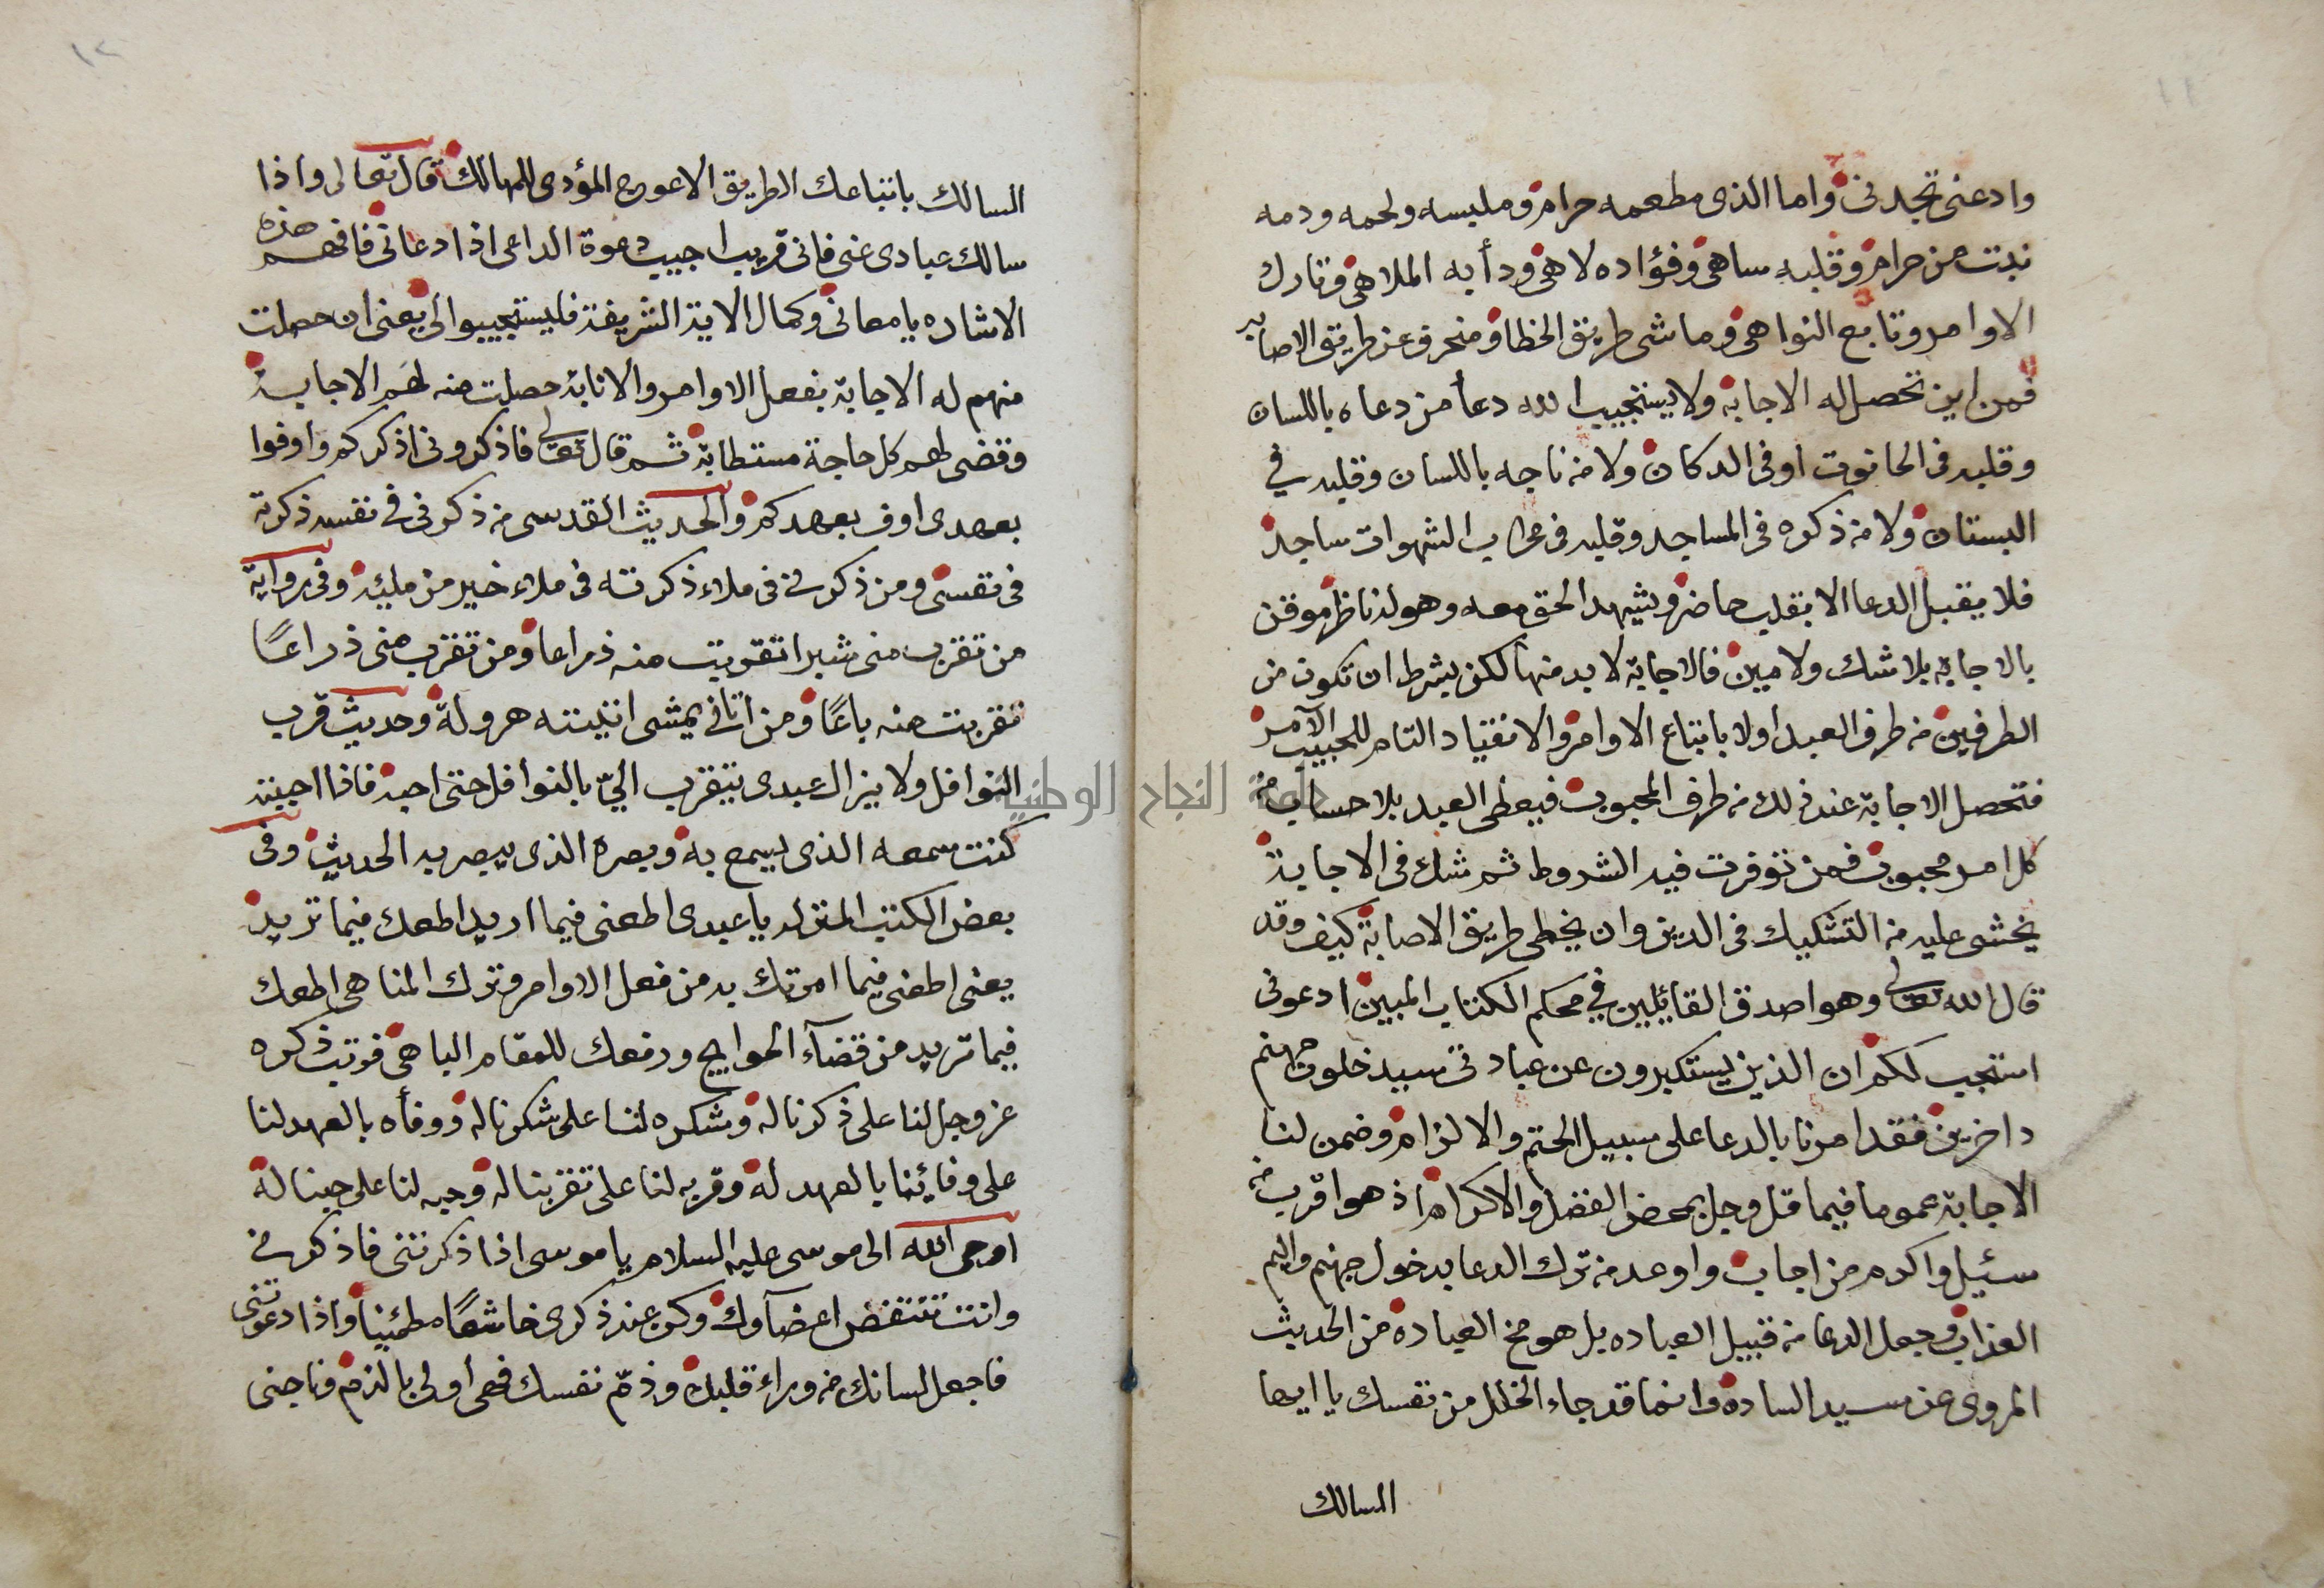 ١١
وادعنى تجدنى واما الذى مطعمه حرام وملبسه ولحمه ودمه
نبت من حرام وقلبه ساهى وفؤاده لاهى ودأبه الملاهى وتارك
الاوامر وتابع النواهى وماشى طريق الخطا ومنحرف عن طريق الاصابه
فمن اين تحصل له الاجابة ولا يستجيب الله دعأ من دعاه باللسان
وقلبه فى الحانوت او فى الدكان ولا من ناجه باللسان وقلبه في
البستان ولا من ذكره فى المساجد وقلبه فى محراب الشهوات ساجد
فلا يقبل الدعا الا بقلب حاضر ويشهد الحق معه وهو له ناظر موقن
بالاجابة بلا شك ولا مين فالاجابة لا بد منها لكن بشرط ان تكون من
الطرفين من طرف العبد اولا باتباع الاوامر والانقياد التام للحبيب الآمر
فتحصل الاجابة عند ذلك من طرف المحبوب فيعطى العبد بلا حساب من
كل امر محبوب فمن توفرت فيه الشروط ثم شك فى الاجابة
يخشى عليه من التشكيك فى الدين وان يخطى طريق الاصابة كيف وقد
قال الله تعالى وهو اصدق القائلين في محكم الكتاب المبين ادعونى
استجب لكم ان الذين يستكبرون عن عبادتى سيدخلون جهنم
داخرين فقد امرنا بالدعا على سبيل الحتم والالزام وضمن لنا
الاجابة عموما فيما قل وجل بمحض الفضل والاكرام اذ هو اقرب من
سئيل واكرم من اجاب واوعد من ترك الدعا بدخول جهنم واليم
العذاب وجعل الدعا من قبيل العباده بل هو مخ العبادة من الحديث
المروى عن سيد الساده وانما قد جاء الخلل من نفسك يا ايها
السالك
١٢
السالك باتباعك الطريق الاعوج المؤدى للمهالك قال تعالى واذا
سالك عبادى عنى فانى قريب اجيب دعوة الداعى اذا دعانى فافهم هذه
الاشاره يا معانى وكمال الاية الشريفة فليستجيبوا لى يعنى ان حصلت
منهم له الاجابة بفعل الاوامر والانابة حصلت منه لهم الاجابة
وقضى لهم كل حاجة مستطابة ثم قال تعالى فاذكرونى اذكركم واوفوا
بعهدى اوف بعهدكم والحديث القدسى من ذكرنى فى نفسه ذكرته
فى نفسى ومن ذكرنى فى ملاء ذكرته فى ملاء خير من مليه وفى رواية
من تقرب منى شبرا تقربت منه ذراعا ومن تقرب منى ذراعًا
تقربت منه باعًا ومن اتانى يمشى اتيته هرولة وحديث قرب
النوافل ولا يزال عبدى يتقرب اليّ بالنوافل حتى احبه فاذا احببته
كنت سمعه الذى يسمع به وبصره الذى يبصر به الحديث وفى
بعض الكتب المنزله يا عبدى اطعنى فيما اريد اطعك فيما تريد
يعنى اطعنى فيما امرتك به من فعل الاوامر وترك المناهى اطعك
فيما تريد من قضآء الحوايج ورفعك للمقام الباهى فرتب ذكره
عز وجل لنا على ذكرنا له وشكره لنا على شكرنا له ووفأه بالعهد لنا
على وفائينا بالعهد له وقربه لنا على تقربنا له وحبه لنا على حبنا له
اوحى الله الى موسى عليه السلام يا موسى اذا ذكرتنى فاذكرنى
وانت تنتفض اعضآوك وكن عند ذكرى خاشعًا مطمئينا واذا دعوتنى
فاجعل لسانك من وراء قلبك وذمّ نفسك فهى اولى بالذم وناجنى
جامعة النجاح الوطنية